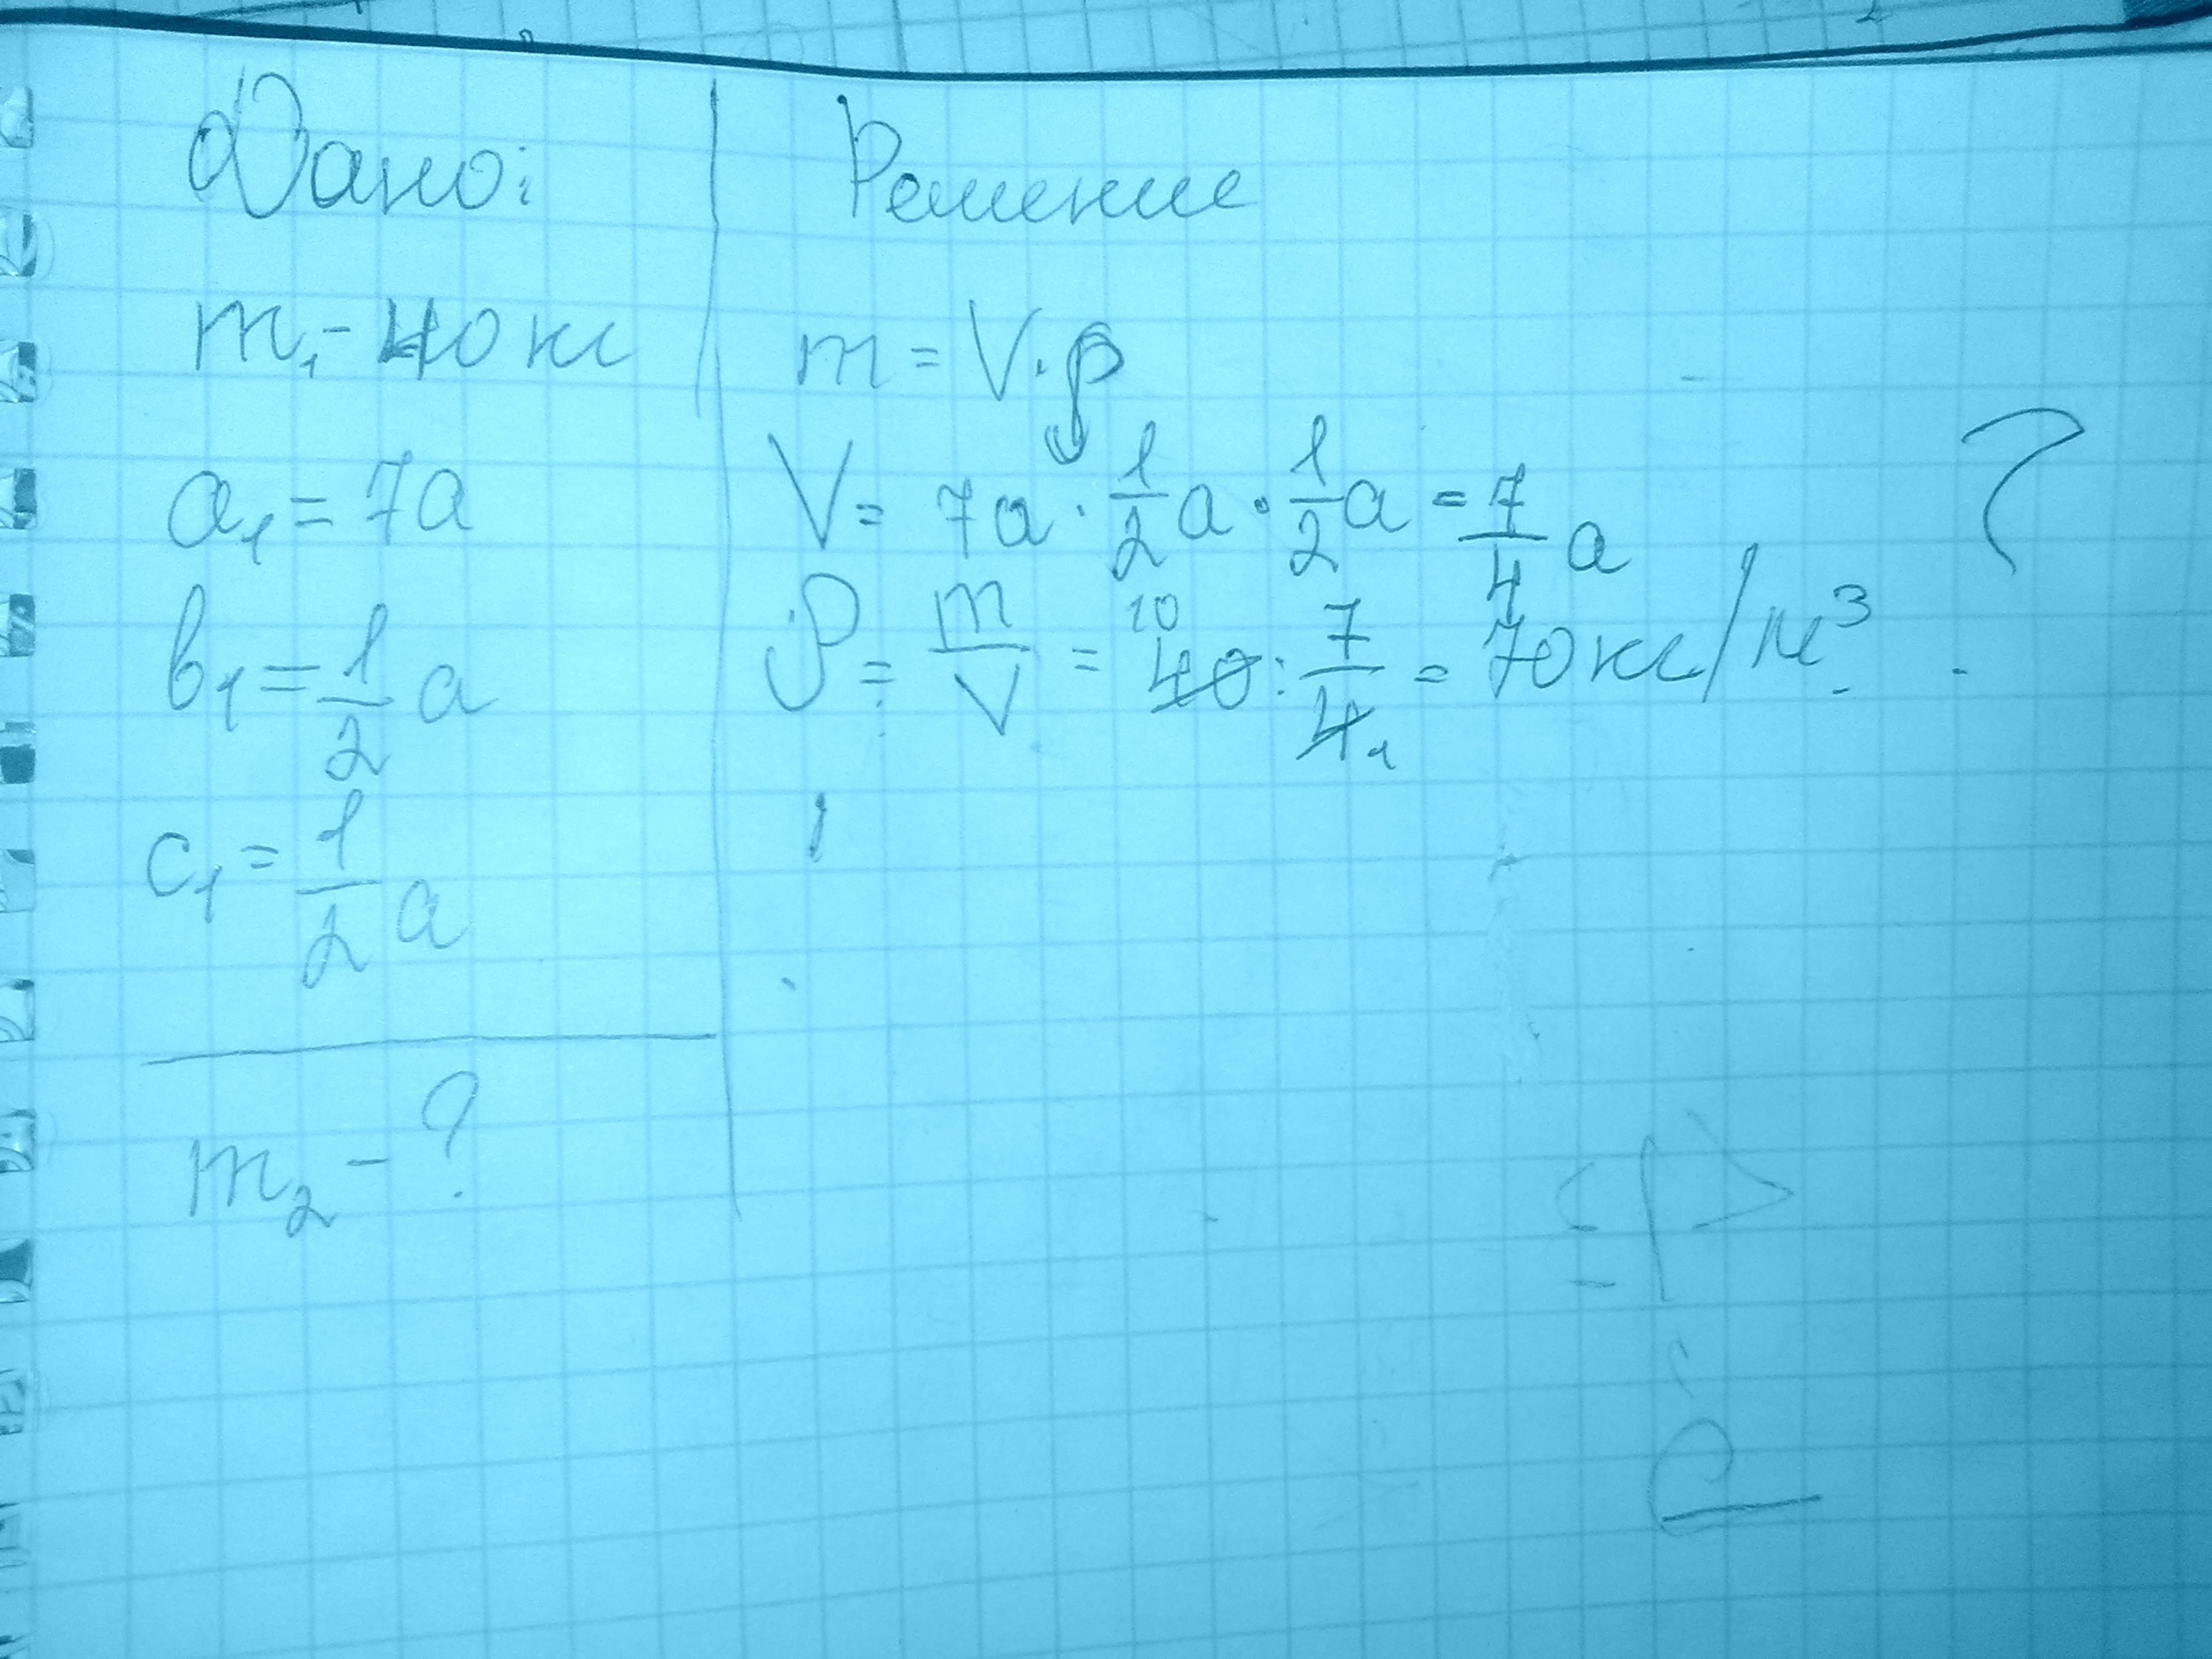 Дано:
m₁ - 40 кг
a₁ = 7a
b₁ = 1/2 a
c₁ = 1/2 a
m₂ - ?
Решение
m = V · ρ
V = 7a · 1/2 a · 1/2 a = 7/4 a ?
ρ = m/V = 40 10 : 7/4 1 = 70 кг/м³.